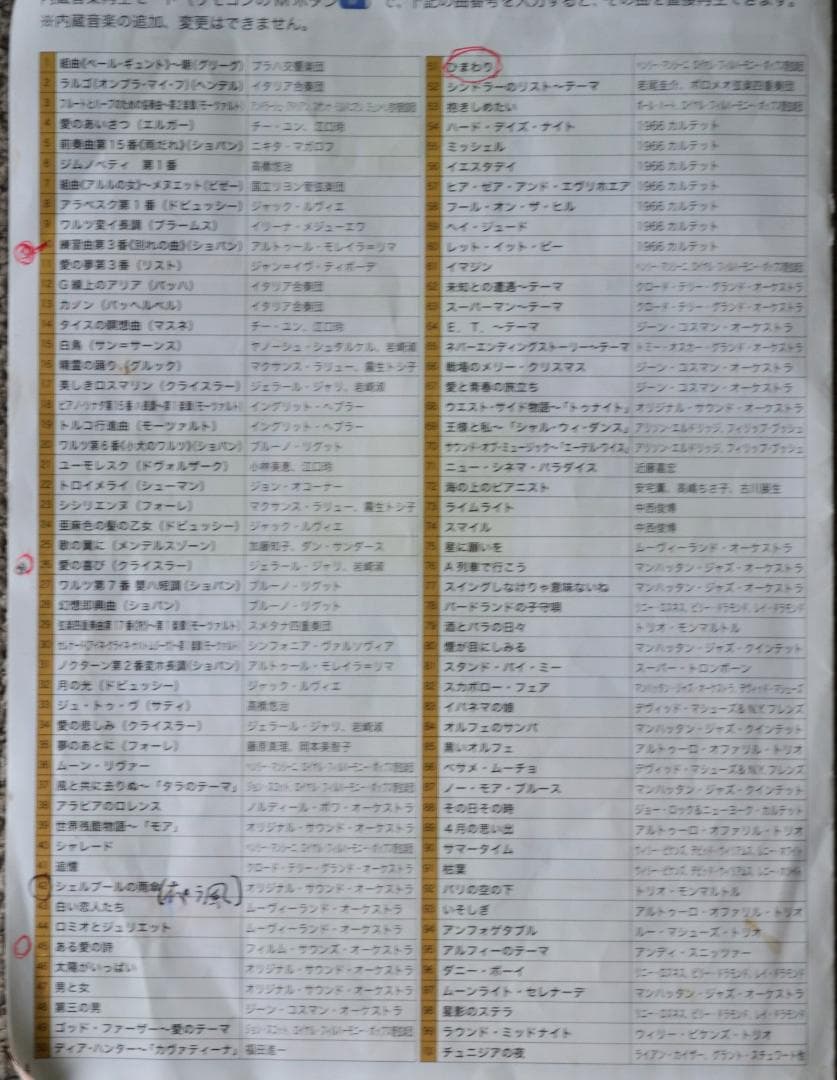 ※内蔵音楽の追加、変更はできません。
1 組曲《ペール・ギュント》～朝(グリーグ) プラハ交響楽団
2 ラルゴ《オンブラ・マイ・フ》(ヘンデル) イタリア合奏団
3 フルートとハープのための協奏曲～第2楽章(モーツァルト)
4 愛のあいさつ(エルガー) チー・ユン、江口玲
5 前奏曲第15番《雨だれ》(ショパン) ニキタ・マガロフ
6 ジムノペディ 第1番 高橋悠治
7 組曲《アルルの女》～メヌエット(ビゼー) 国立リヨン管弦楽団
8 アラベスク第1番(ドビュッシー) ジャック・ルヴィエ
9 ワルツ変イ長調(ブラームス) イリーナ・メジューエワ
練習曲第3番《別れの曲》(ショパン) アルトゥール・モレイラ＝リマ
11 愛の夢第3番(リスト) ジャン＝イヴ・ティボーデ
12 G線上のアリア(バッハ) イタリア合奏団
13 カノン(パッヘルベル) イタリア合奏団
14 タイスの瞑想曲(マスネ) チー・ユン、江口玲
15 白鳥(サン＝サーンス) ヤノーシュ・シュタルケル、岩崎淑
16 精霊の踊り(グルック) マクサンス・ラリュー、瀧生トシ子
17 美しきロスマリン(クライスラー) ジェラール・ジャリ、岩崎淑
18 ピアノ・ソナタ第15番ハ長調～第1楽章(モーツァルト) イングリット・ヘブラー
19 トルコ行進曲(モーツァルト) イングリット・ヘブラー
20 ワルツ第6番《小犬のワルツ》(ショパン) ブルーノ・リグット
21 ユーモレスク(ドヴォルザーク) 小林美恵、江口玲
22 トロイメライ(シューマン) ジョン・オコーナー
23 シシリエンヌ(フォーレ) マクサンス・ラリュー、瀧生トシ子
24 亜麻色の髪の乙女(ドビュッシー) ジャック・ルヴィエ
25 歌の翼に(メンデルスゾーン) 加藤知子、ダン・サンダース
26 愛の喜び(クライスラー) ジェラール・ジャリ、岩崎淑
27 ワルツ第7番 嬰ハ短調(ショパン) ブルーノ・リグット
28 幻想即興曲(ショパン) ブルーノ・リグット
29 弦楽四重奏曲第17番《狩》～第1楽章(モーツァルト) スメタナ四重奏団
30 セレナード《アイネ・クライネ・ナハトムジーク》～第1楽章(モーツァルト) シンフォニア・ヴァルソヴィア
31 ノクターン第2番変ホ長調(ショパン) アルトゥール・モレイラ＝リマ
32 月の光(ドビュッシー) ジャック・ルヴィエ
33 ジュ・トゥ・ヴ(サティ) 高橋悠治
34 愛の悲しみ(クライスラー) ジェラール・ジャリ、岩崎淑
35 夢のあとに(フォーレ) 藤原真理、岡本美智子
36 ムーン・リヴァー
37 風と共に去りぬ～「タラのテーマ」
38 アラビアのロレンス ノルディール・ボワ・オーケストラ
39 世界残酷物語～「モア」 オリジナル・サウンド・オーケストラ
40 シャレード
41 追憶 クロード・テリー・グランド・オーケストラ
42 シェルブールの雨傘 オリジナル・サウンド・オーケストラ
43 白い恋人たち ムーヴィーランド・オーケストラ
44 ロミオとジュリエット ムーヴィーランド・オーケストラ
45 ある愛の詩 フィルム・サウンズ・オーケストラ
46 太陽がいっぱい オリジナル・サウンド・オーケストラ
47 男と女 オリジナル・サウンド・オーケストラ
48 第三の男 ジーン・コスマン・オーケストラ
49 ゴッド・ファーザー～愛のテーマ
50 ディア・ハンター～「カヴァティーナ」 福田進一
51 ひまわり
52 シンドラーのリスト～テーマ 岩尾圭介、ボロメオ弦楽四重奏団
53 抱きしめたい
54 ハード・デイズ・ナイト 1966カルテット
55 ミッシェル 1966カルテット
56 イエスタデイ 1966カルテット
57 ヒア・ゼア・アンド・エヴリホエア 1966カルテット
58 フール・オン・ザ・ヒル 1966カルテット
59 ヘイ・ジュード 1966カルテット
60 レット・イット・ビー 1966カルテット
61 イマジン
62 未知との遭遇～テーマ クロード・テリー・グランド・オーケストラ
63 スーパーマン～テーマ クロード・テリー・グランド・オーケストラ
64 E．T．～テーマ ジーン・コスマン・オーケストラ
65 ネバーエンディングストーリー～テーマ トミー・オスカー・グランド・オーケストラ
66 戦場のメリー・クリスマス ジーン・コスマン・オーケストラ
67 愛と青春の旅立ち ジーン・コスマン・オーケストラ
68 ウエスト・サイド物語～「トゥナイト」 オリジナル・サウンド・オーケストラ
69 王様と私～「シャル・ウィ・ダンス」 アリソン・エルドリッジ、フィリップ・ブッシュ
70 サウンド・オブ・ミュージック～「エーデルワイス」 アリソン・エルドリッジ、フィリップ・ブッシュ
71 ニュー・シネマ・パラダイス 近藤嘉宏
72 海の上のピアニスト 安宅薫、高嶋ちさ子、古川展生
73 ライムライト 中西俊博
74 スマイル 中西俊博
75 星に願いを ムーヴィーランド・オーケストラ
76 A列車で行こう マンハッタン・ジャズ・オーケストラ
77 スイングしなけりゃ意味ないね マンハッタン・ジャズ・オーケストラ
78 バードランドの子守唄
79 酒とバラの日々 トリオ・モンマルトル
80 煙が目にしみる マンハッタン・ジャズ・クインテット
81 スタンド・バイ・ミー スーパー・トロンボーン
82 スカボロー・フェア マンハッタン・ジャズ・オーケストラ、デヴィッド・マシューズ
83 イパネマの娘 デヴィッド・マシューズ&N.Y.フレンズ
84 オルフェのサンバ マンハッタン・ジャズ・クインテット
85 黒いオルフェ アルトゥーロ・オファリル・トリオ
86 ベサメ・ムーチョ デヴィッド・マシューズ&N.Y.フレンズ
87 ノー・モア・ブルース マンハッタン・ジャズ・クインテット
88 その日その時 ジョー・ロック&ニューヨーク・カルテット
89 4月の思い出 アルトゥーロ・オファリル・トリオ
90 サマータイム
91 枯葉
92 パリの空の下 トリオ・モンマルトル
93 いそしぎ アルトゥーロ・オファリル・トリオ
94 アンフォゲタブル ルー・マシューズ・トリオ
95 アルフィーのテーマ アンディ・スニッツァー
96 ダニー・ボーイ
97 ムーンライト・セレナーデ マンハッタン・ジャズ・オーケストラ
98 星影のステラ
99 ラウンド・ミッドナイト ウィリー・ピケンズ・トリオ
チュニジアの夜 ライアン・カイザー、グラント・スチュワート他